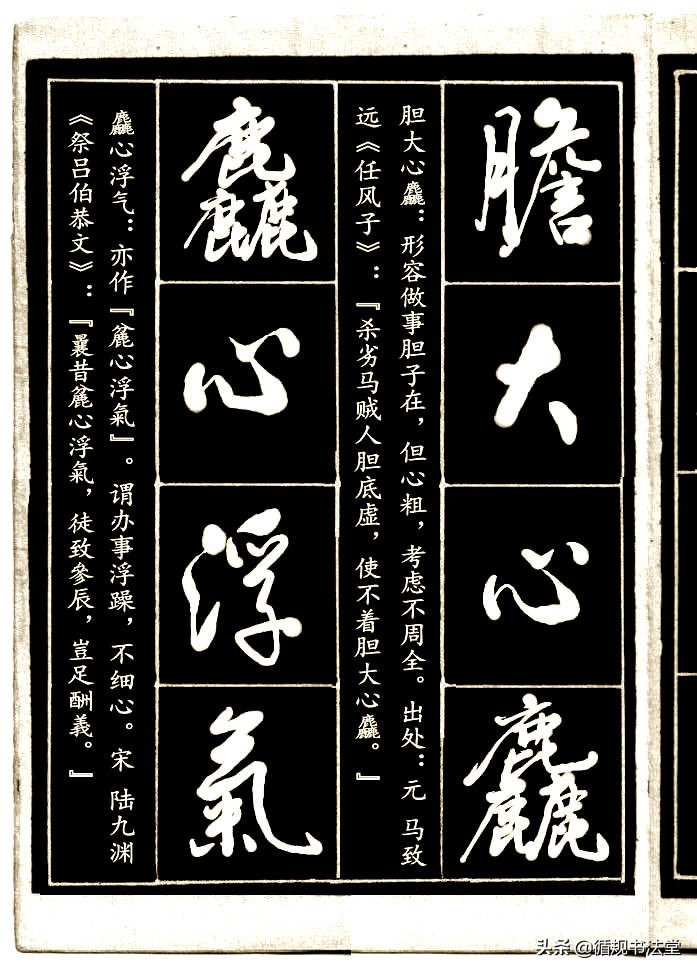 膽大心麤
胆大心麤：形容做事胆子在，但心粗，考虑不周全。出处：元 马致
远《任风子》：『杀劣马贼人胆底虚，使不着胆大心麤。』
麤心浮氣
麤心浮气：亦作『麄心浮氣』。谓办事浮躁，不细心。宋 陆九渊
《祭吕伯恭文》：『曩昔麄心浮氣，徒致參辰，豈足酬義。』
头条 @循规书法堂